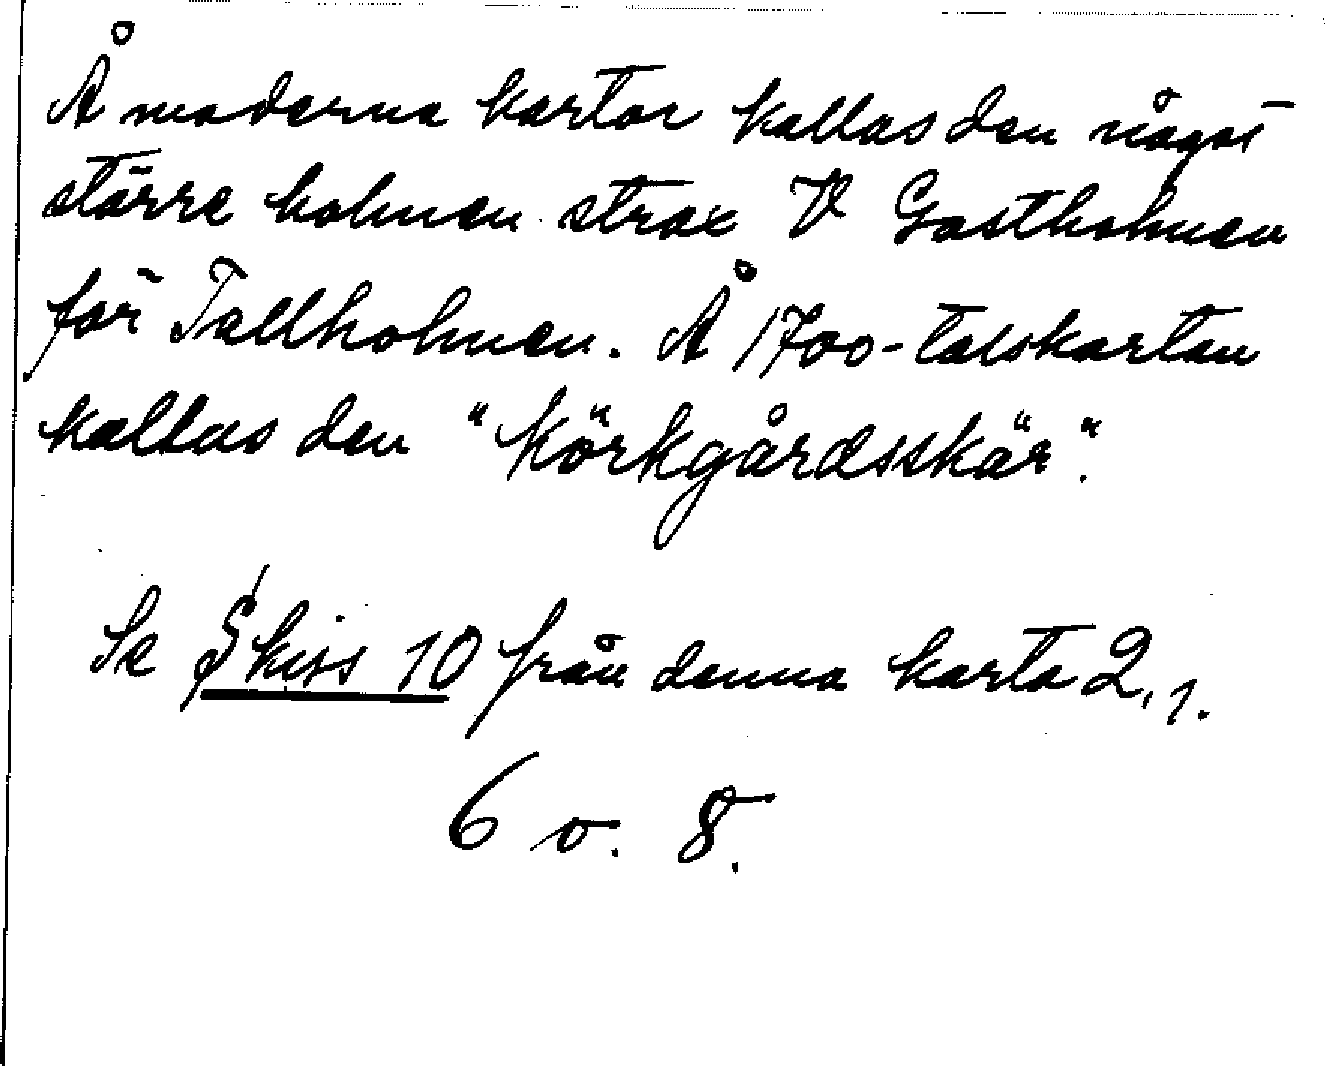 Å moderna kartor kallas den något
större holmen strax V Gastholmen
för Tallholmen. Å 1700-talskartan
kallas den "Körkgårdsskär".
Se Skiss 10 från denna karta 2,1.
6 o. 8.